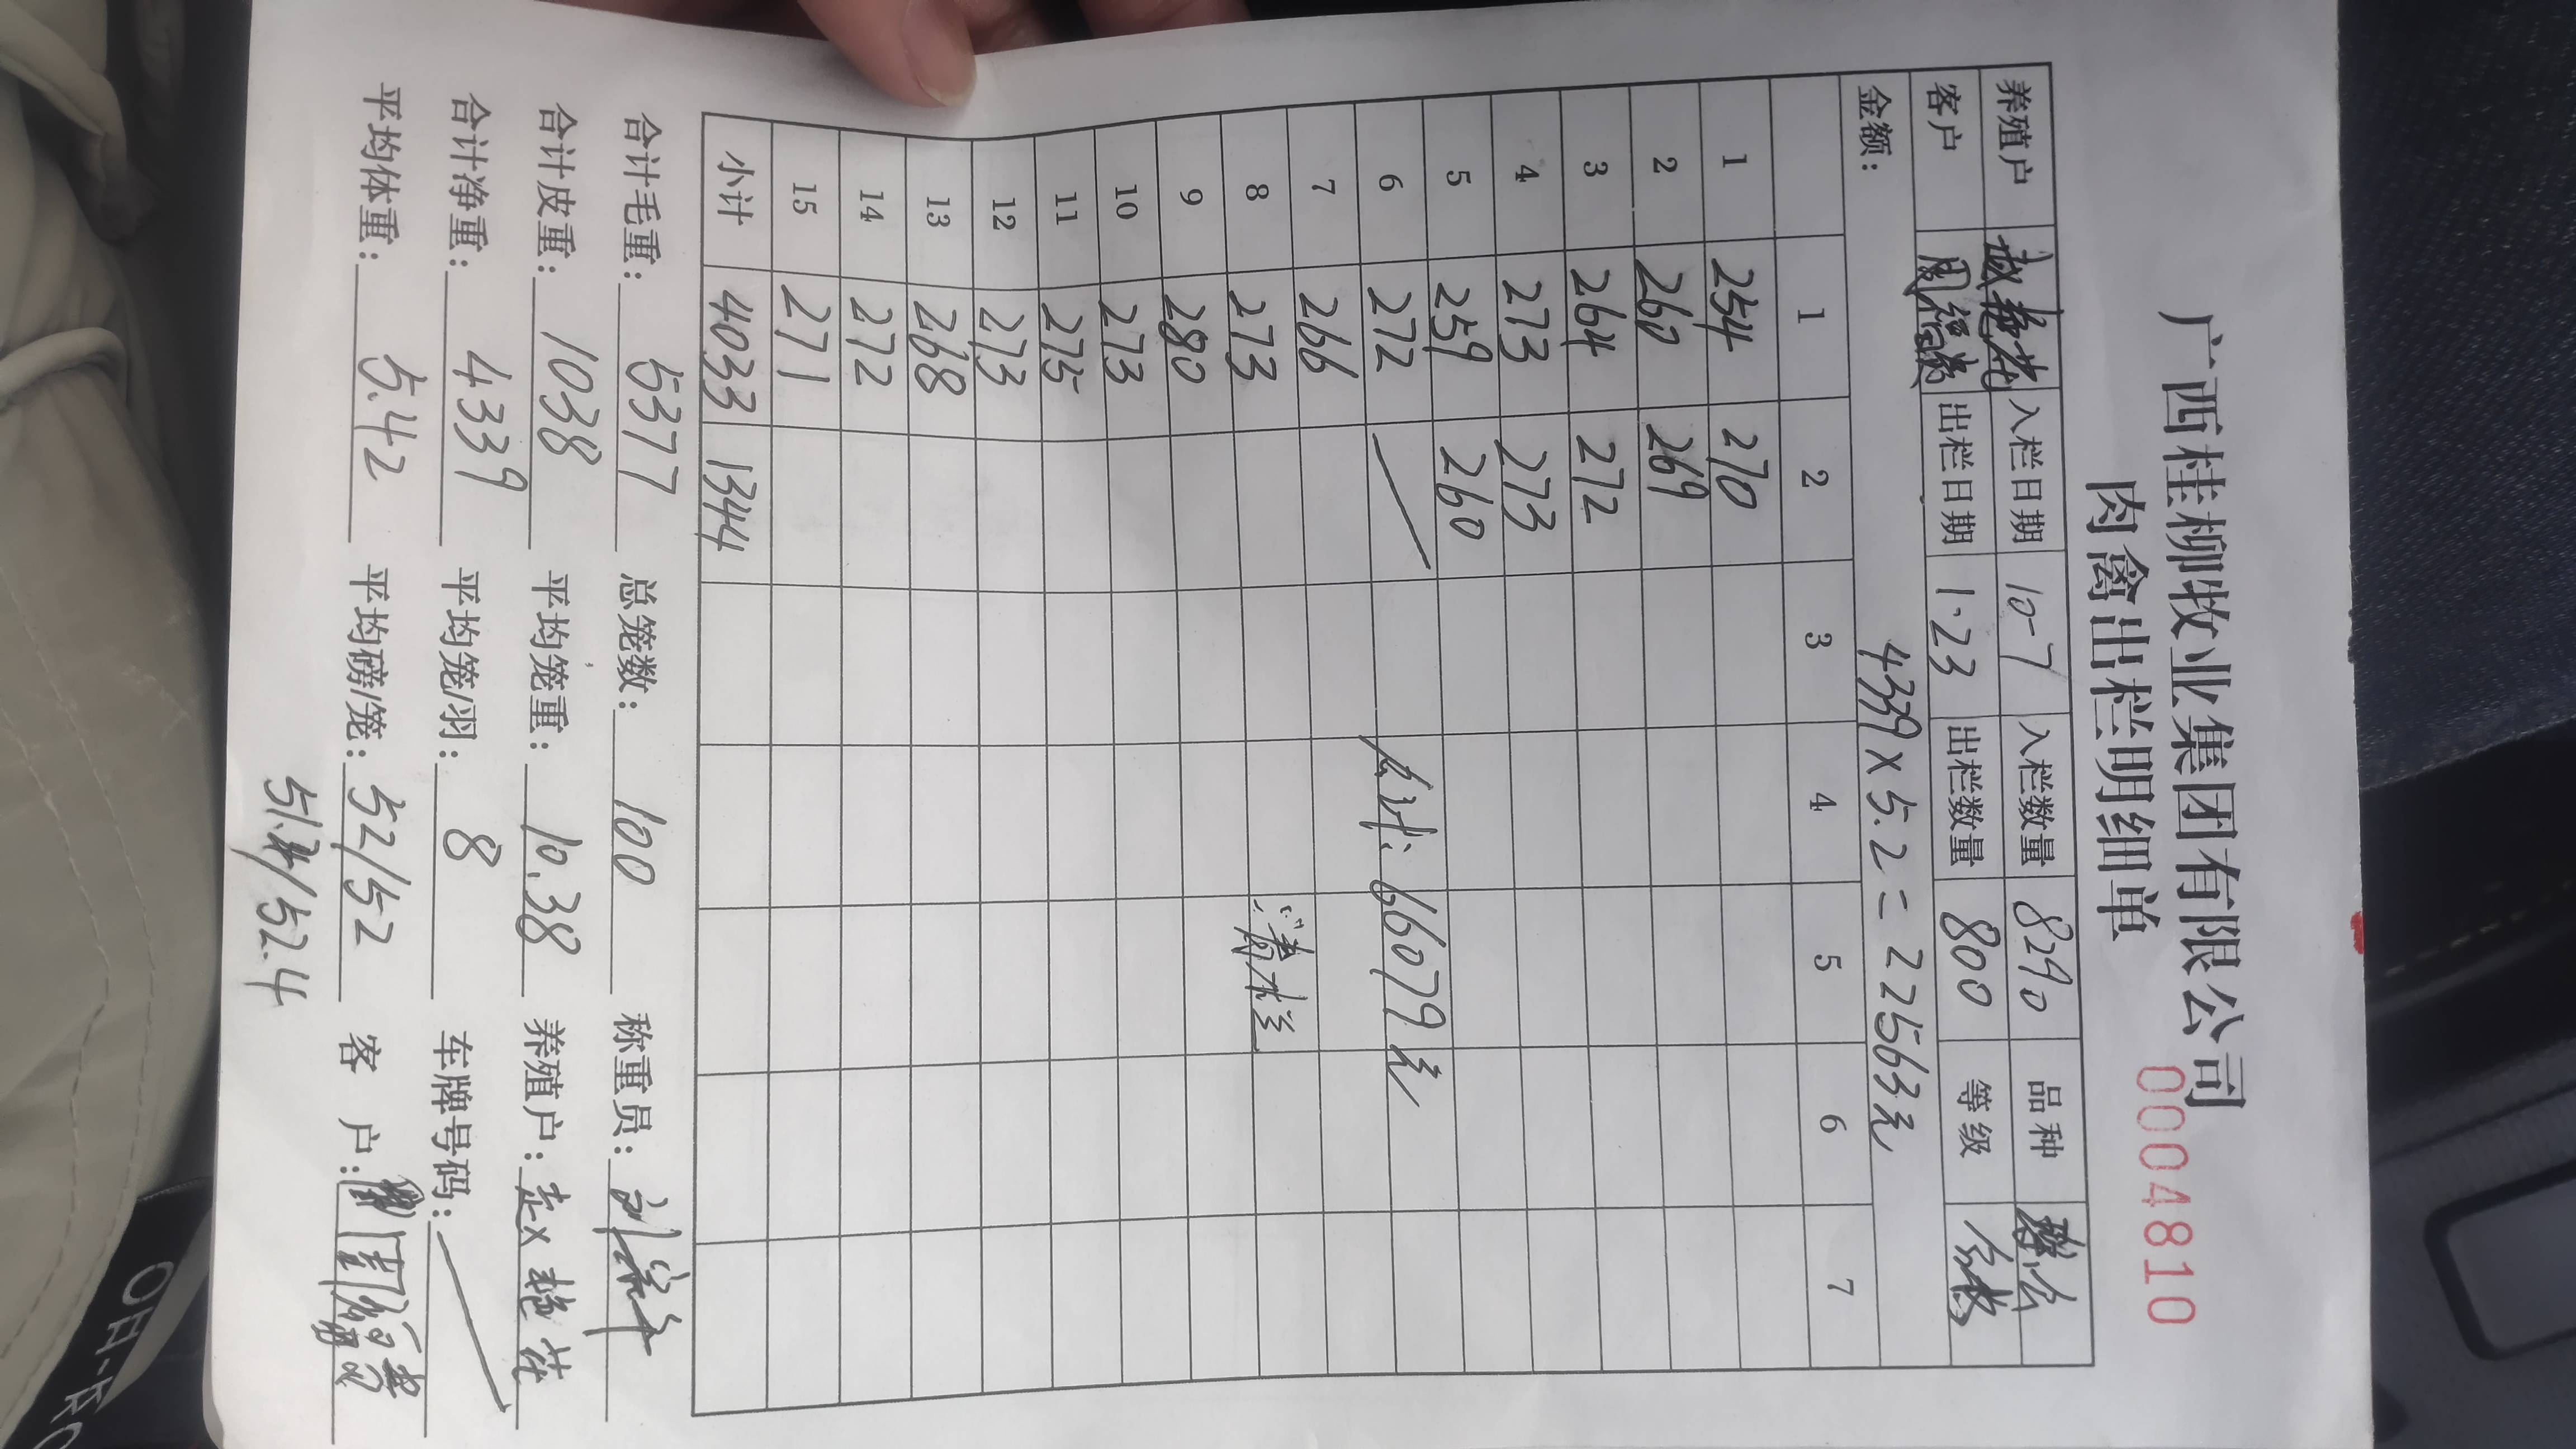 广西桂柳牧业集团有限公司
肉禽出栏明细单 0004810
养殖户 赵艳花 入栏日期 10-7 入栏数量 8290 品种
客户 出栏日期 1·23 出栏数量 800 等级 合格
金额： 4339×5.2=22563元
1 2 3 4 5 6 7
1 254 270
2 260 269
3 264 272
4 273 273
5 259 260
6 272 共计：66079元
7 266
8 273
9 280
10 273
11 275
12 273
13 268
14 272
15 271
小计 4033 1344
合计毛重：5377 总笼数：100 称重员：
合计皮重：1038 平均笼重：10.38 养殖户：赵艳花
合计净重：4339 平均笼/羽：8 车牌号码：
平均体重：5.42 平均磅/笼：52/52 客 户：
/52.4
OH-K